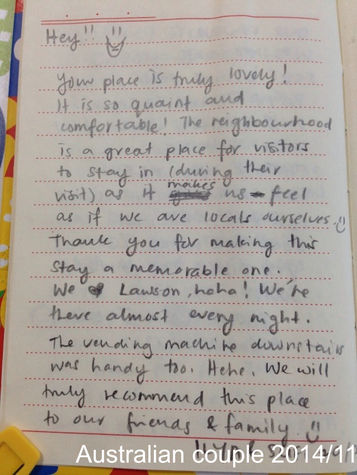 Hey!!
Your place is truly lovely!
It is so quaint and
comfortable! The neighbourhood
is a great place for visitors
to stay in (during their
visit) as it makes us feel
as if we are locals ourselves.
Thank you for making this
stay a memorable one.
We ♥ Lawson, haha! We're
there almost every night.
The vending machine downstairs
was handy too. Hehe. We will
truly recommend this place
to our friends & family.
Australian couple 2014/11